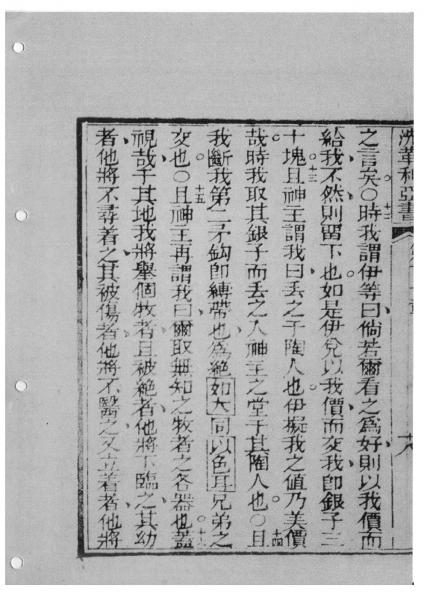 之言矣○十二時我謂伊等曰倘若爾看之爲好則以我價而
給我不然則留下也如是伊兌以我價而交我即銀子三
十塊○十三且神主謂我曰丟之于陶人也伊擬我之值乃美價
哉時我取其銀子而丟之入神主之堂于其陶人也○十四且
我斷我第二矛鈎卽縛帶也爲絶如大同以色耳兄弟之
交也○十五且神主再謂我曰爾取無知之牧者之各器也○十六蓋
視哉于其地我將舉個牧者且被絶者他將不臨之其幼
者他將不尋着之其被傷者他將不醫之又立着者他將